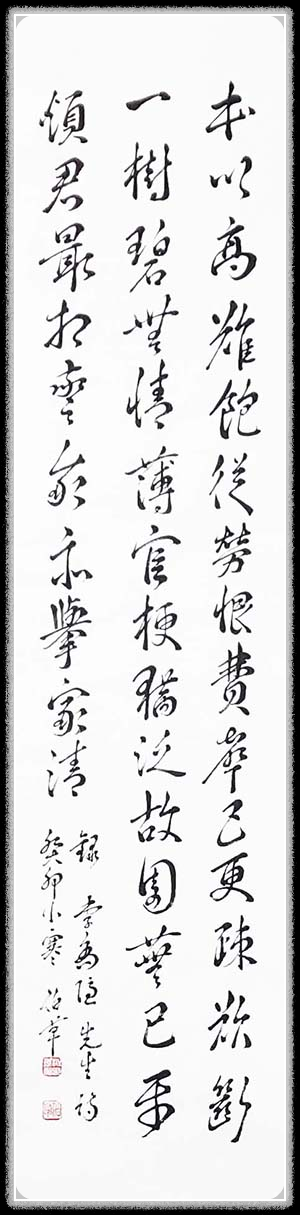 本以高難飽徒勞恨費聲五更疎欲斷
一樹碧無情薄宦梗猶泛故園蕪已平
煩君最相警我亦舉家清
錄李商隱先生詩
癸卯小寒